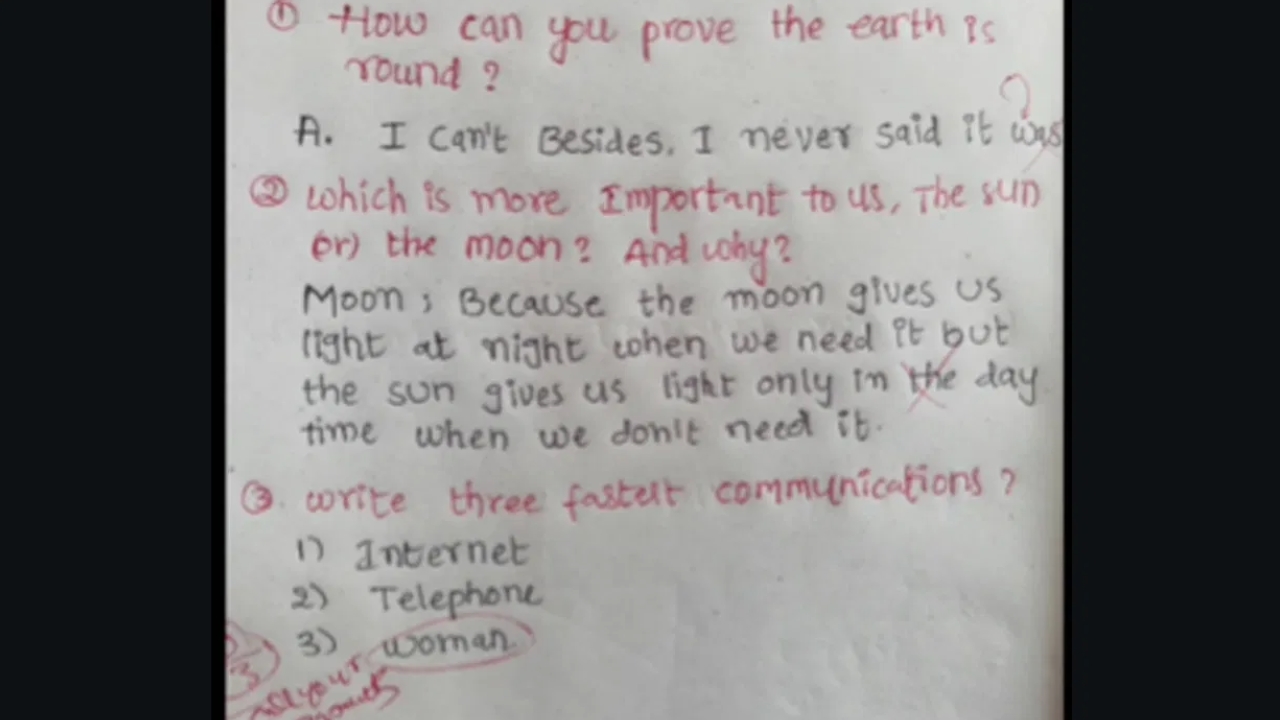 ① How can you prove the earth is
round ?
?
A. I can't Besides. I never said it was
② which is more Important to us, The sun
(or) the moon? And why?
Moon; Because the moon gives us
light at night when we need it but
the sun gives us light only in the day
time when we don't need it.
③. write three fastest communications ?
1) Internet
2) Telephone
3) woman
3
your